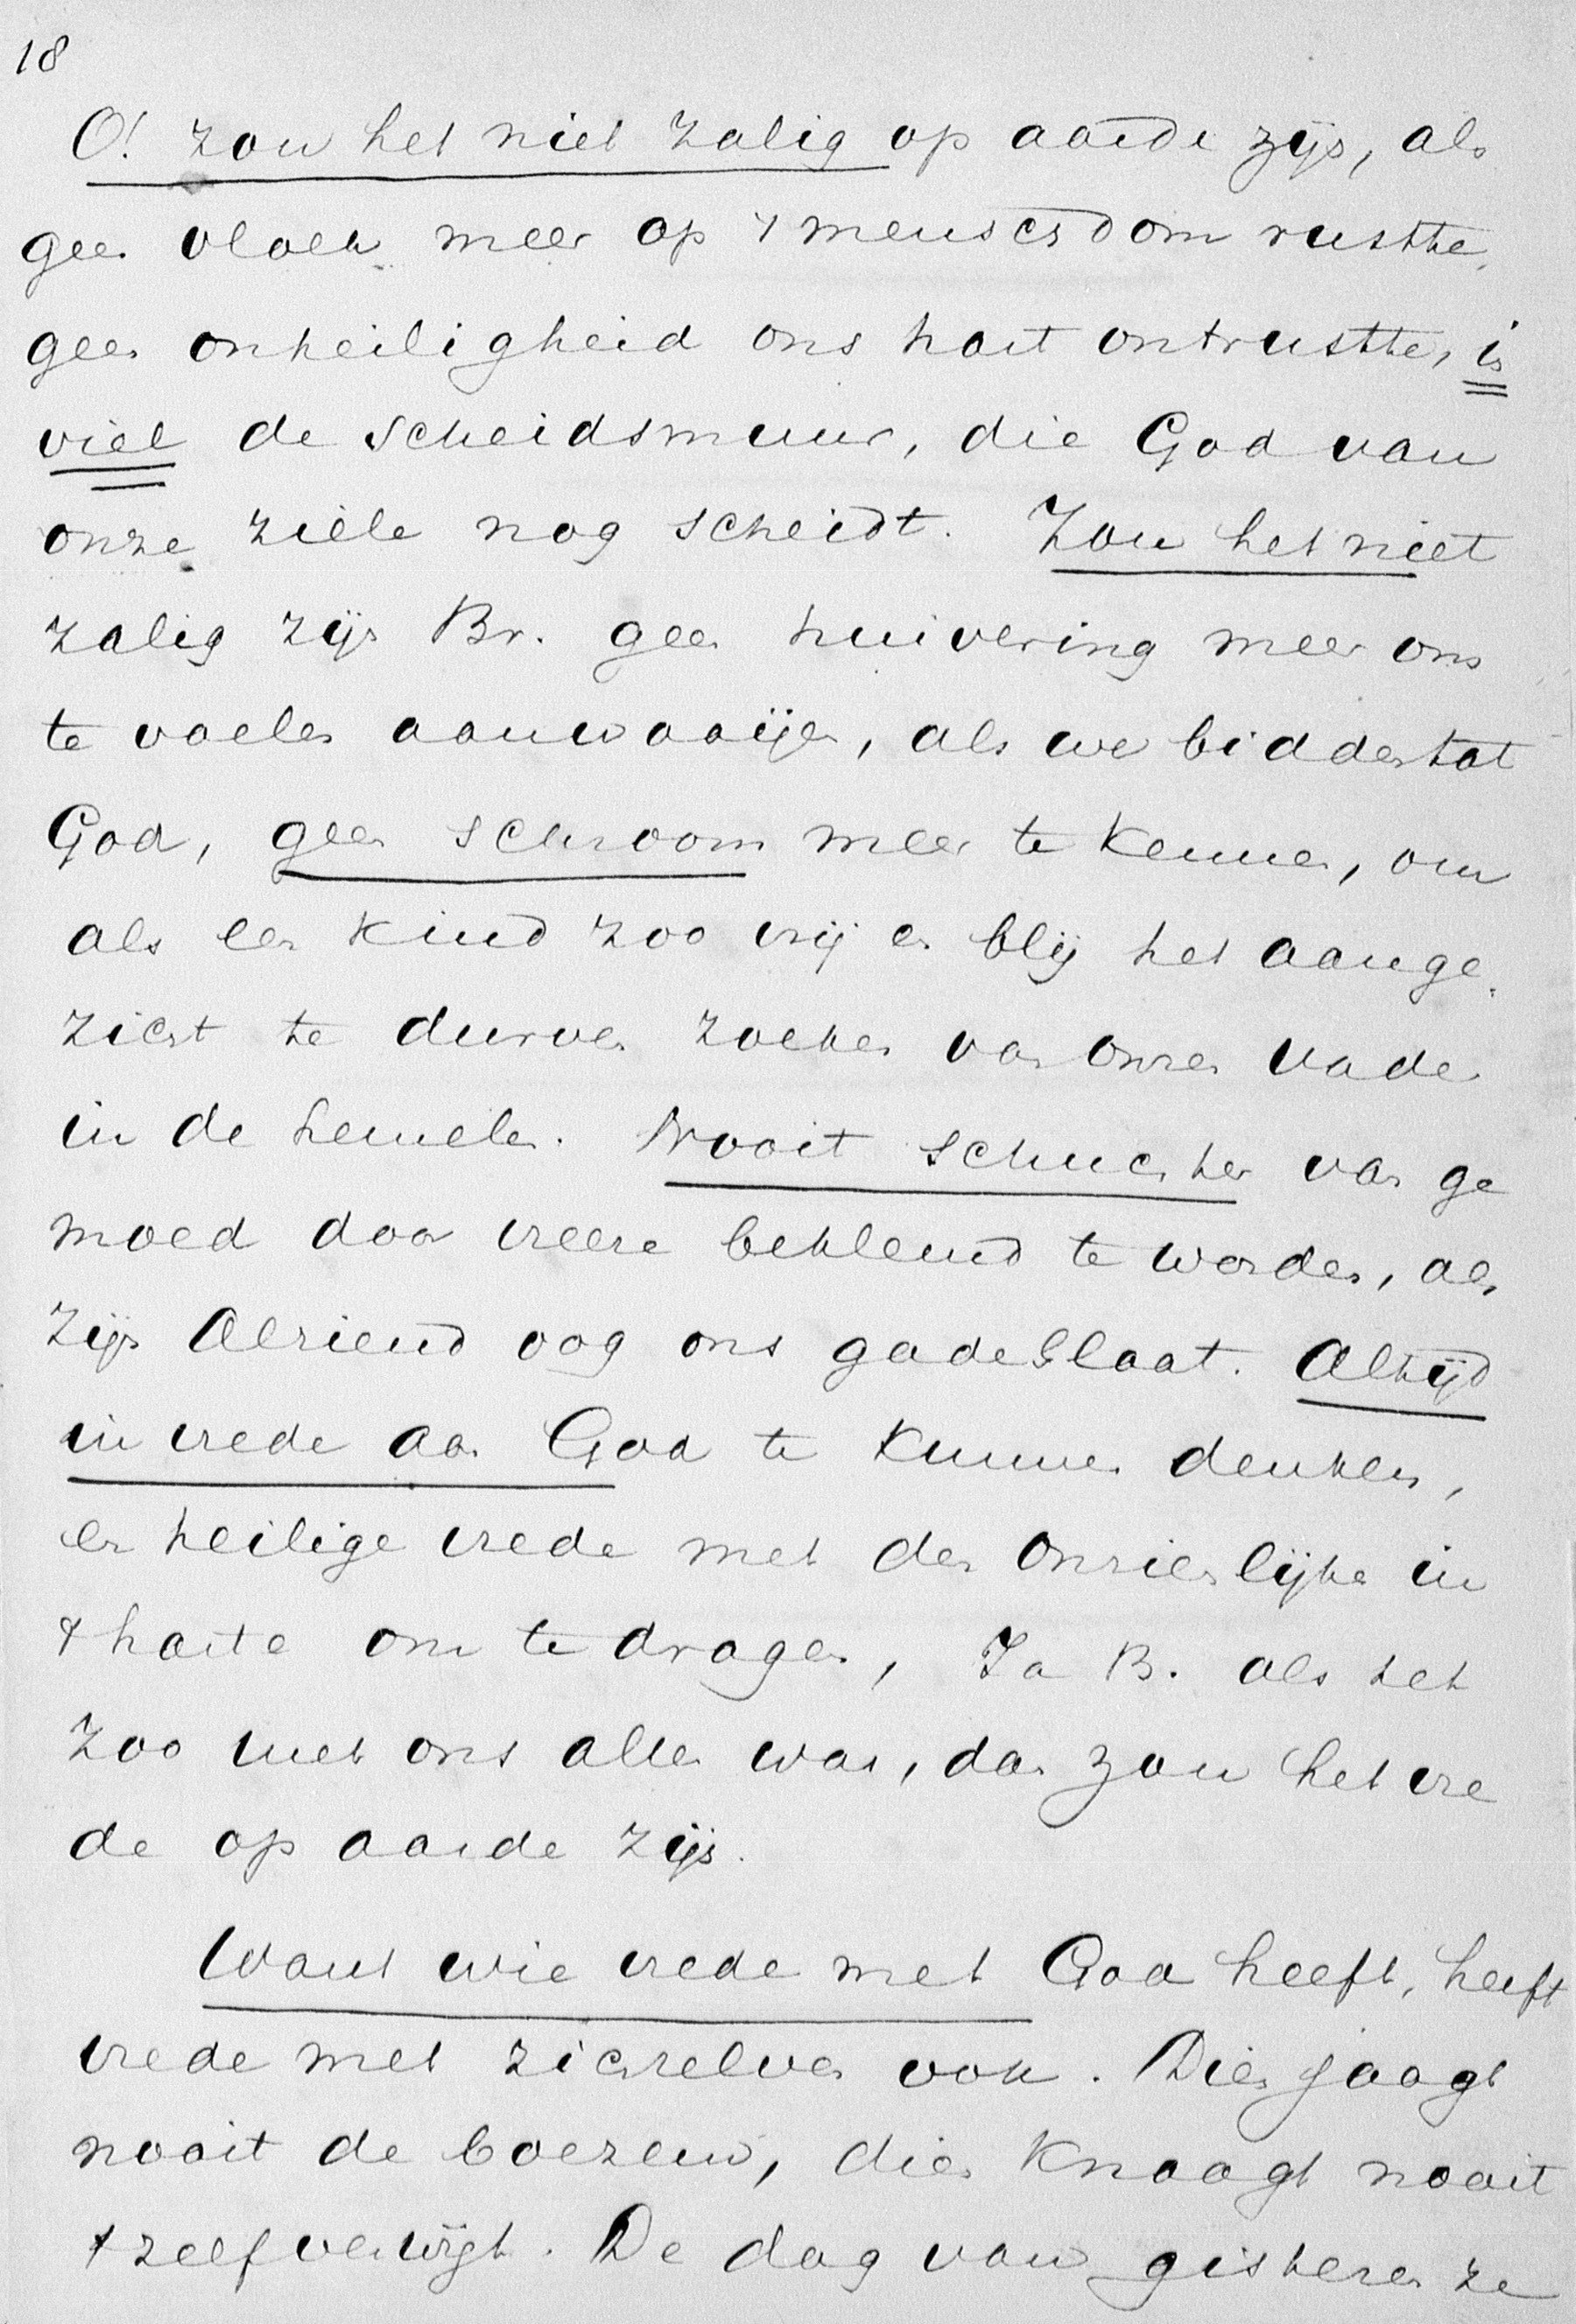 18
O! zou het niet zalig op aarde zijn, als
geen vloek meer op 't menschdom rustte,
geen onheiligheid ons hart ontrustte, in
viel de scheidsmuur, die God van
onze ziele nog scheidt. Zou het niet
zalig zijn Br. geen huivering meer ons
te voelen aanwaaijen, als we bidden tot
God, geen schroom meer te kennen, om
als een kind zoo vrij en blij het aange-
zicht te durven zoeken van onzen Vader
in de hemelen. Nooit schuchter van ge
moed door vreeze beklemd te worden, als
zijn Alziend oog ons gadeslaat. Altijd
in vrede aan God te kunnen denken,
en heilige vrede met den Onzienlijke in
't harte om te dragen, Ja B. als het
zoo met ons allen was, dan zou het vre
de op aarde zijn.
Want wie vrede met God heeft, heeft
vrede met zichzelven ook. Dien jaagt
nooit de boezem, dien knaagt nooit
't zelfverwijt. De dag van gisteren ze